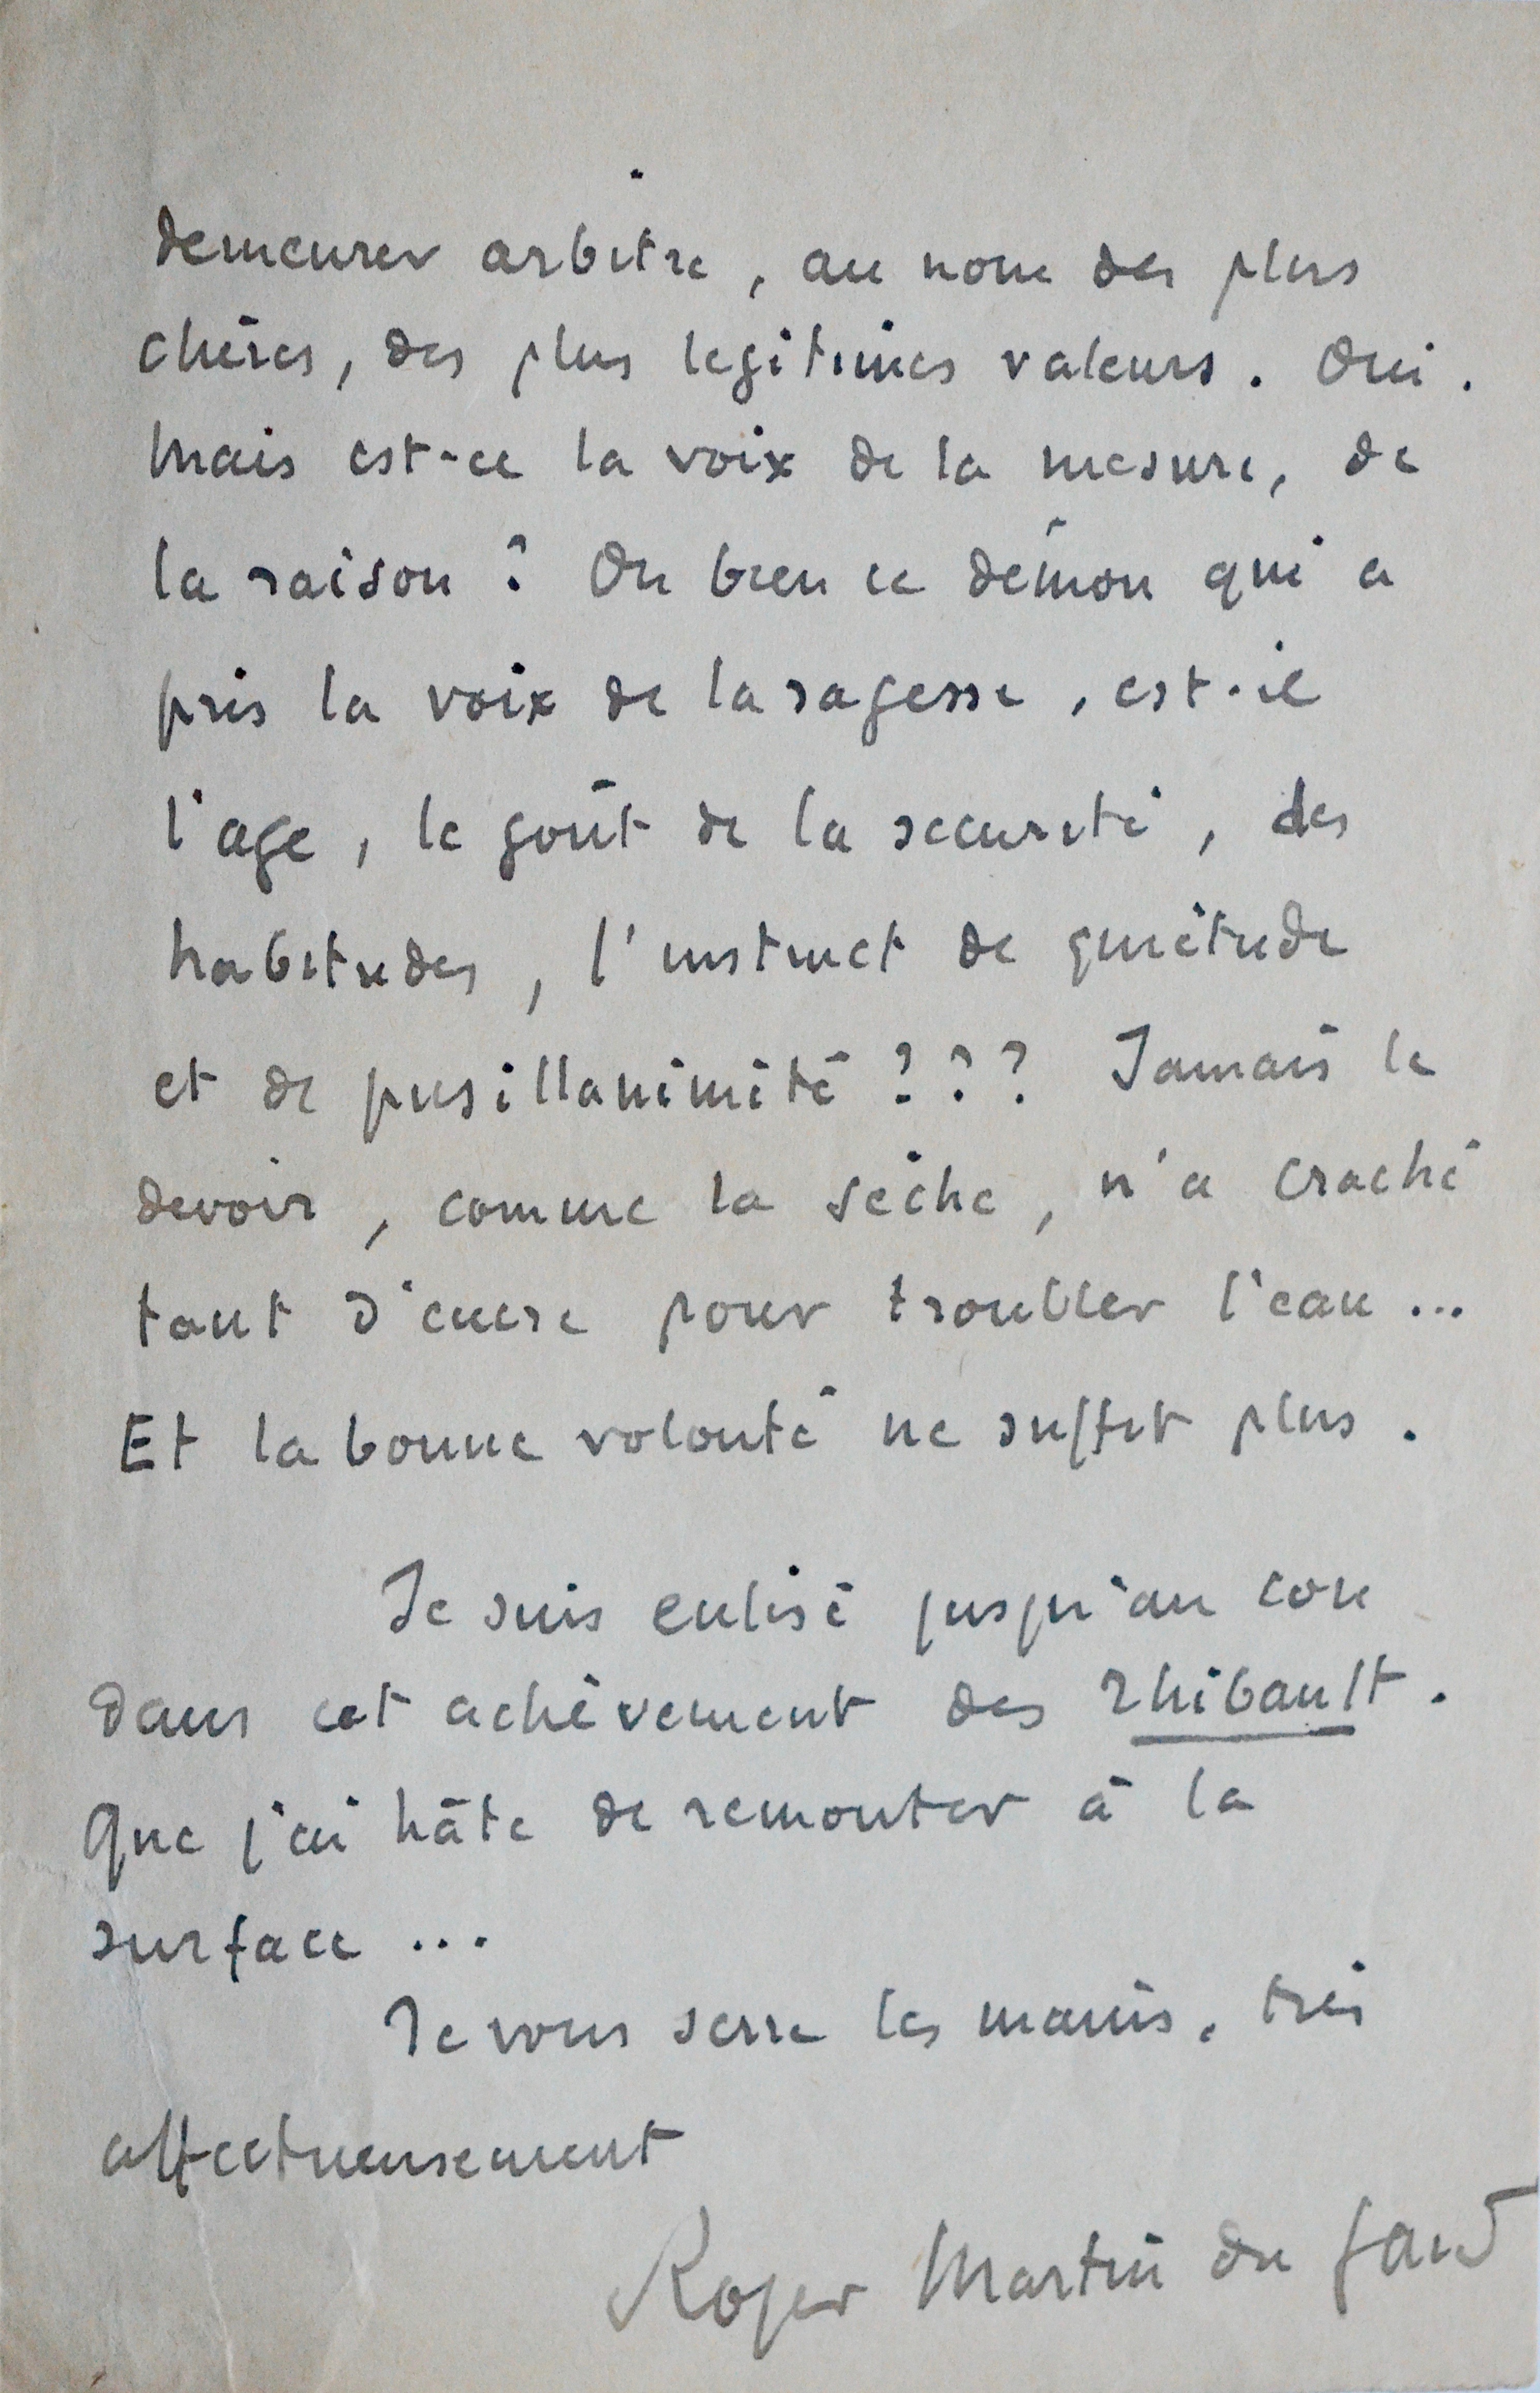 demeurer arbitre, au nom des plus
chères, des plus légitimes valeurs. Oui.
Mais est-ce la voix de la mesure, de
la raison ? Ou bien ce démon qui a
pris la voix de la sagesse, est-il
l'age, le goût de la sécurité, des
habitudes, l'instinct de quiétude
et de pusillanimité ? ? ? Jamais le
devoir, comme la sèche, n'a craché
tant d'encre pour troubler l'eau ...
Et la bonne volonté ne suffit plus.
Je suis enlisé jusqu'au cou
dans cet achèvement des Thibault.
Que j'ai hâte de remonter à la
surface ...
Je vous serre les mains, très
affectueusement
Roger Martin du Gard